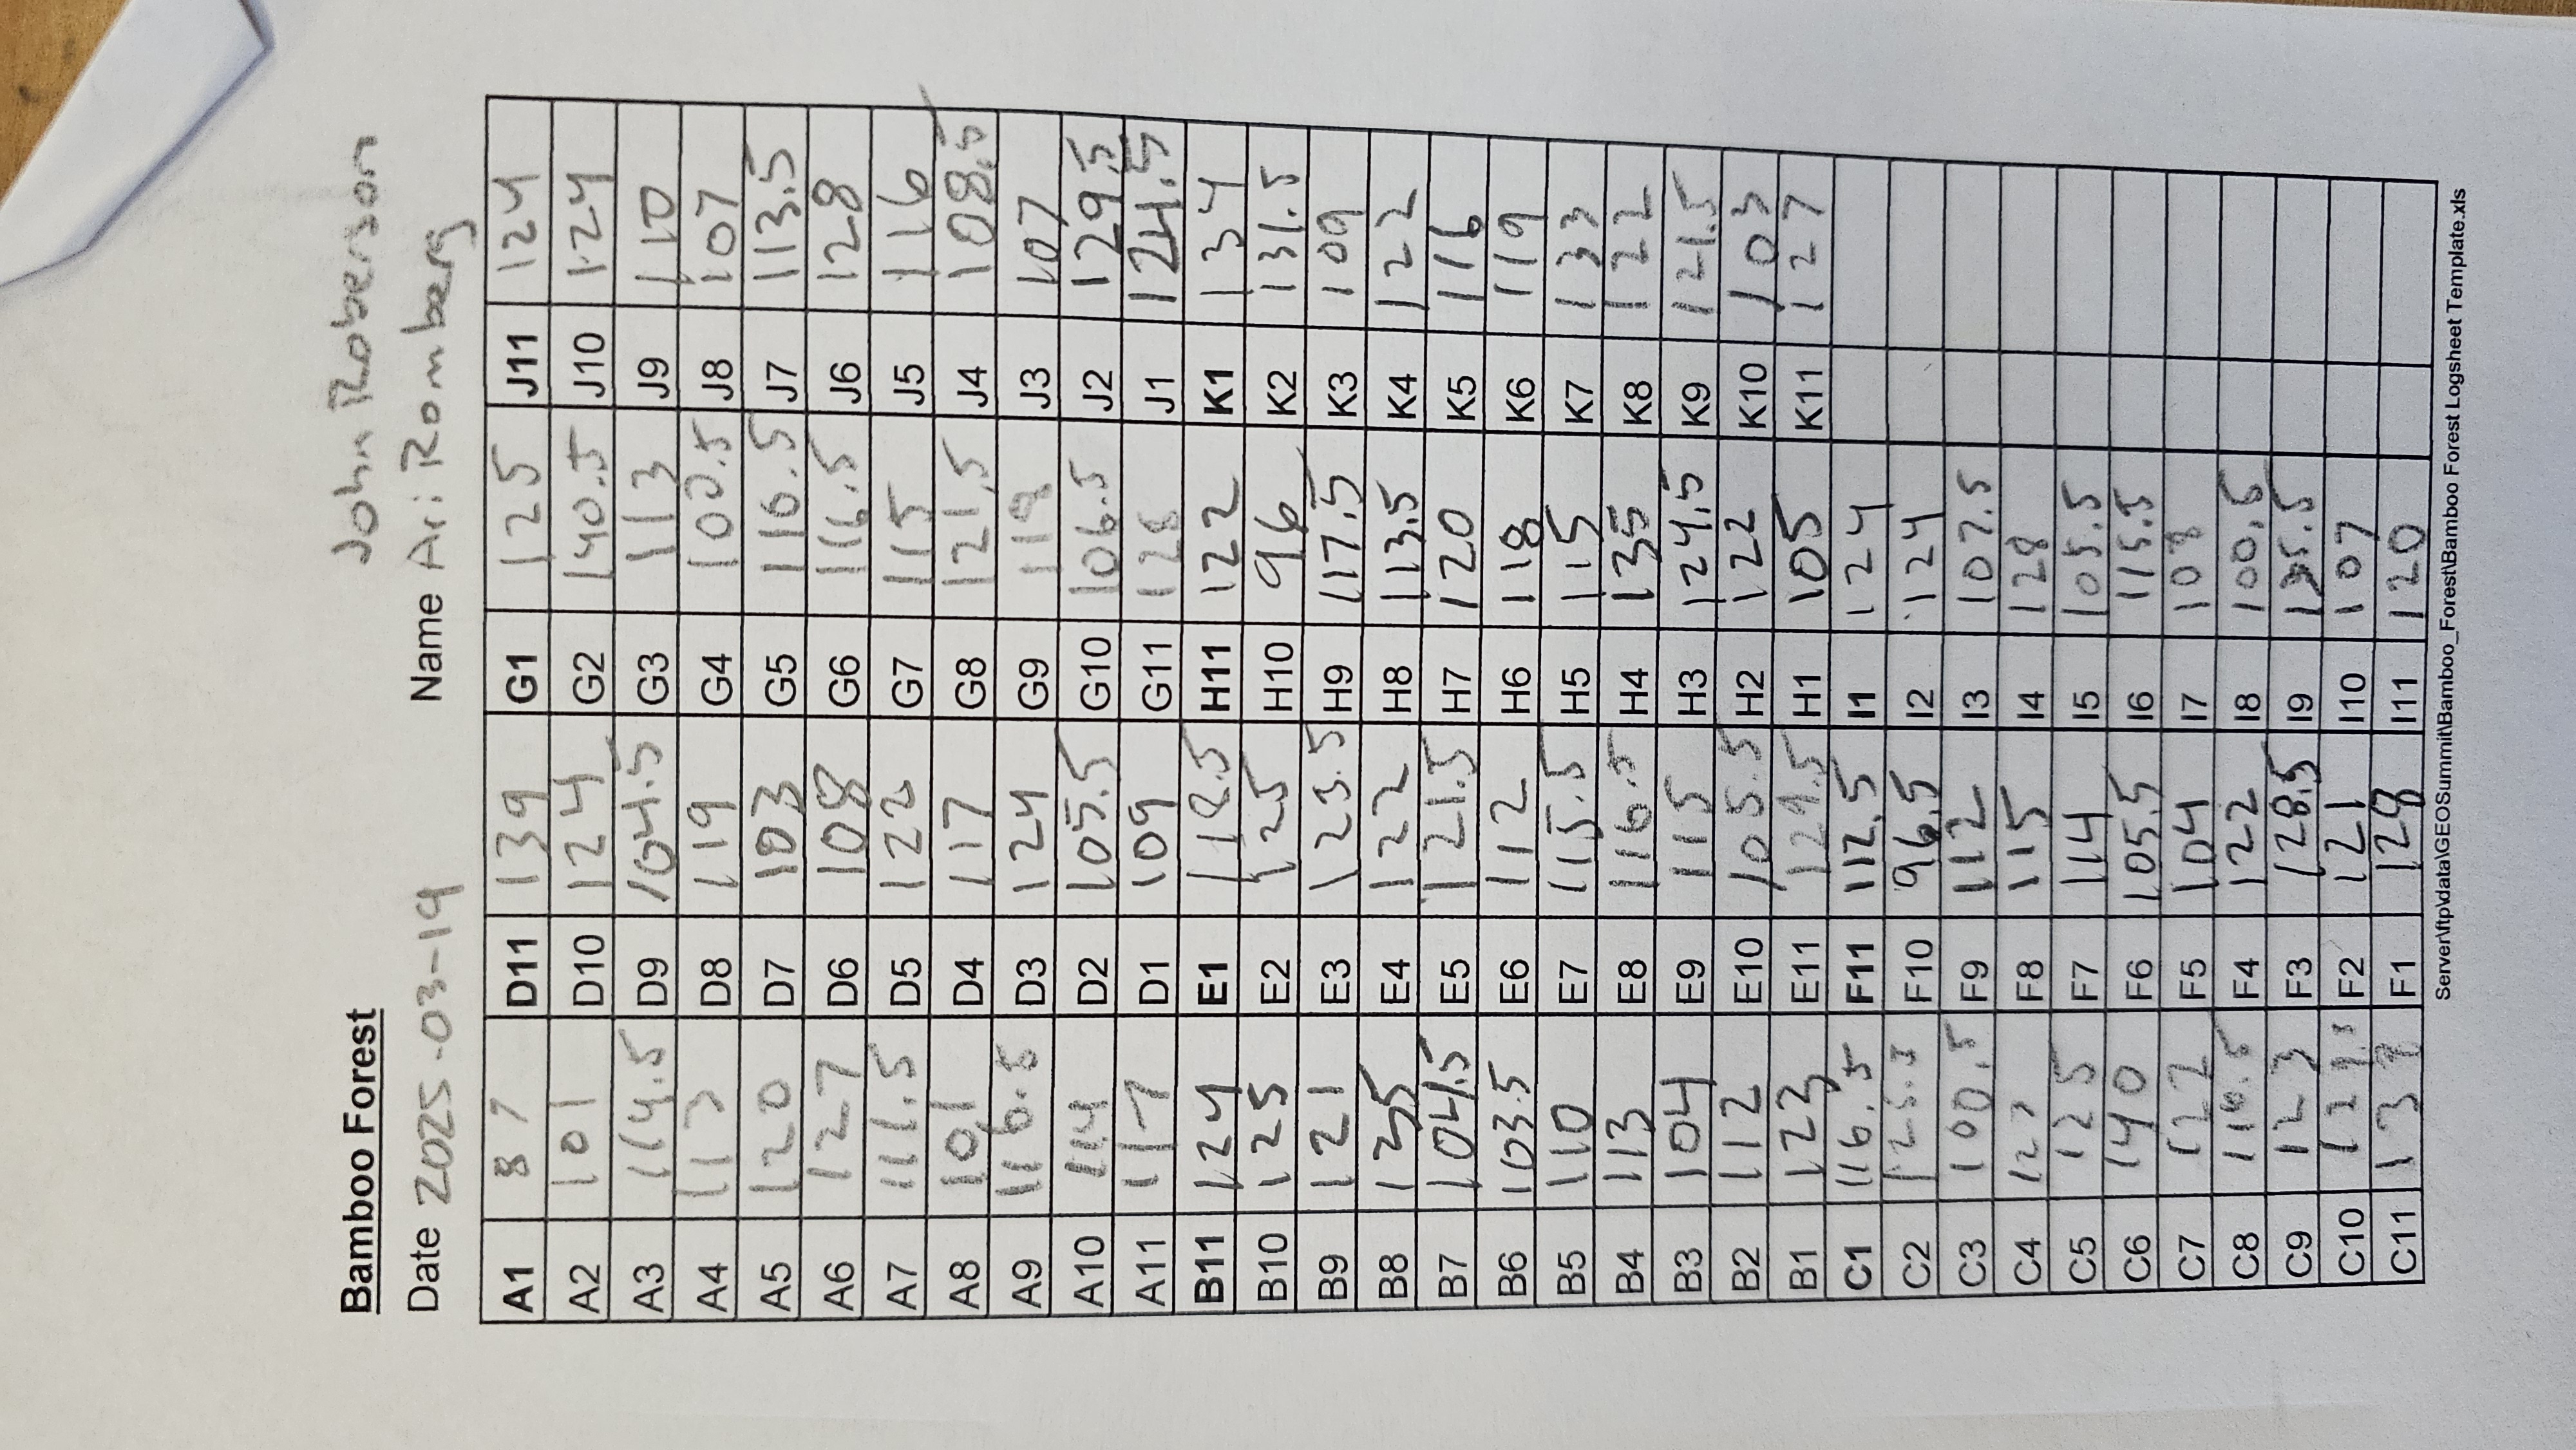 Bamboo Forest
John Roberson
Date 2025-03-19 Name Ari Romberg
A1 87 D11 139 G1 125 J11 124
A2 101 D10 124 G2 140.5 J10 124
A3 114.5 D9 104.5 G3 113 J9 110
A4 117 D8 119 G4 J8 107
A5 120 D7 103 G5 116.5 J7 113.5
A6 127 D6 108 G6 116.5 J6 128
A7 111.5 D5 122 G7 115 J5 116
A8 101 D4 117 G8 121.5 J4 108.5
A9 116.5 D3 124 G9 J3 107
A10 114 D2 105.5 G10 106.5 J2 129.5
A11 117 D1 109 G11 128 J1 124.5
B11 124 E1 H11 122 K1 134
B10 125 E2 125 H10 96 K2 131.5
B9 121 E3 123.5 H9 117.5 K3 109
B8 135 E4 122 H8 113.5 K4 122
B7 104.5 E5 121.5 H7 120 K5 116
B6 103.5 E6 112 H6 118 K6 119
B5 110 E7 115.5 H5 115 K7 133
B4 113 E8 116.5 H4 135 K8 122
B3 104 E9 115 H3 124.5 K9 121.5
B2 112 E10 105.5 H2 122 K10 103
B1 123 E11 H1 105 K11 127
C1 116.5 F11 112.5 I1 124
C2 F10 96.5 I2 124
C3 100.5 F9 112 I3 107.5
C4 127 F8 115 I4 128
C5 125 F7 114 I5 105.5
C6 140 F6 105.5 I6 115.5
C7 122 F5 104 I7 108
C8 116.5 F4 122 I8 100.5
C9 123 F3 128.5 I9 135.5
C10 F2 121 I10 107
C11 F1 128 I11 120
Server\ftp\data\GEOSummit\Bamboo_Forest\Bamboo Forest Logsheet Template.xls